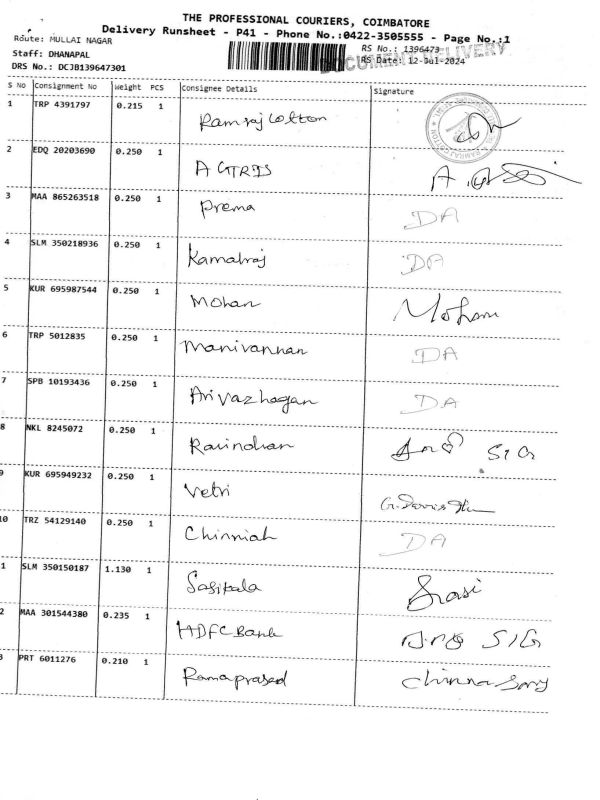 THE PROFESSIONAL COURIERS, COIMBATORE
Delivery Runsheet - P41 - Phone No.:0422-3505555 - Page No.:1
Route: MULLAI NAGAR
Staff: DHANAPAL
DRS No.: DCJB139647301
RS No.: 1396473
RS Date: 12-Jul-2024
DOCUMENT DELIVERY
S No Consignment No Weight PCS Consignee Details Signature
1 TRP 4391797 0.215 1 Ramraj Cotton
2 EDQ 20203690 0.250 1 A GTRIS
3 MAA 865263518 0.250 1 Prema DA
4 SLM 350218936 0.250 1 Kamalraj DA
5 KUR 695987544 0.250 1 Mohan Mohan
6 TRP 5012835 0.250 1 Manivannan DA
7 SPB 10193436 0.250 1 Arivazhagan DA
8 NKL 8245072 0.250 1 Ravindran SIG
9 KUR 695949232 0.250 1 Vetri
10 TRZ 54129140 0.250 1 Chinniah DA
1 SLM 350150187 1.130 1 Sasikala Srasi
2 MAA 301544380 0.235 1 HDFC Bank SIG
3 PRT 6011276 0.210 1 Ramaprasad Chinna Samy